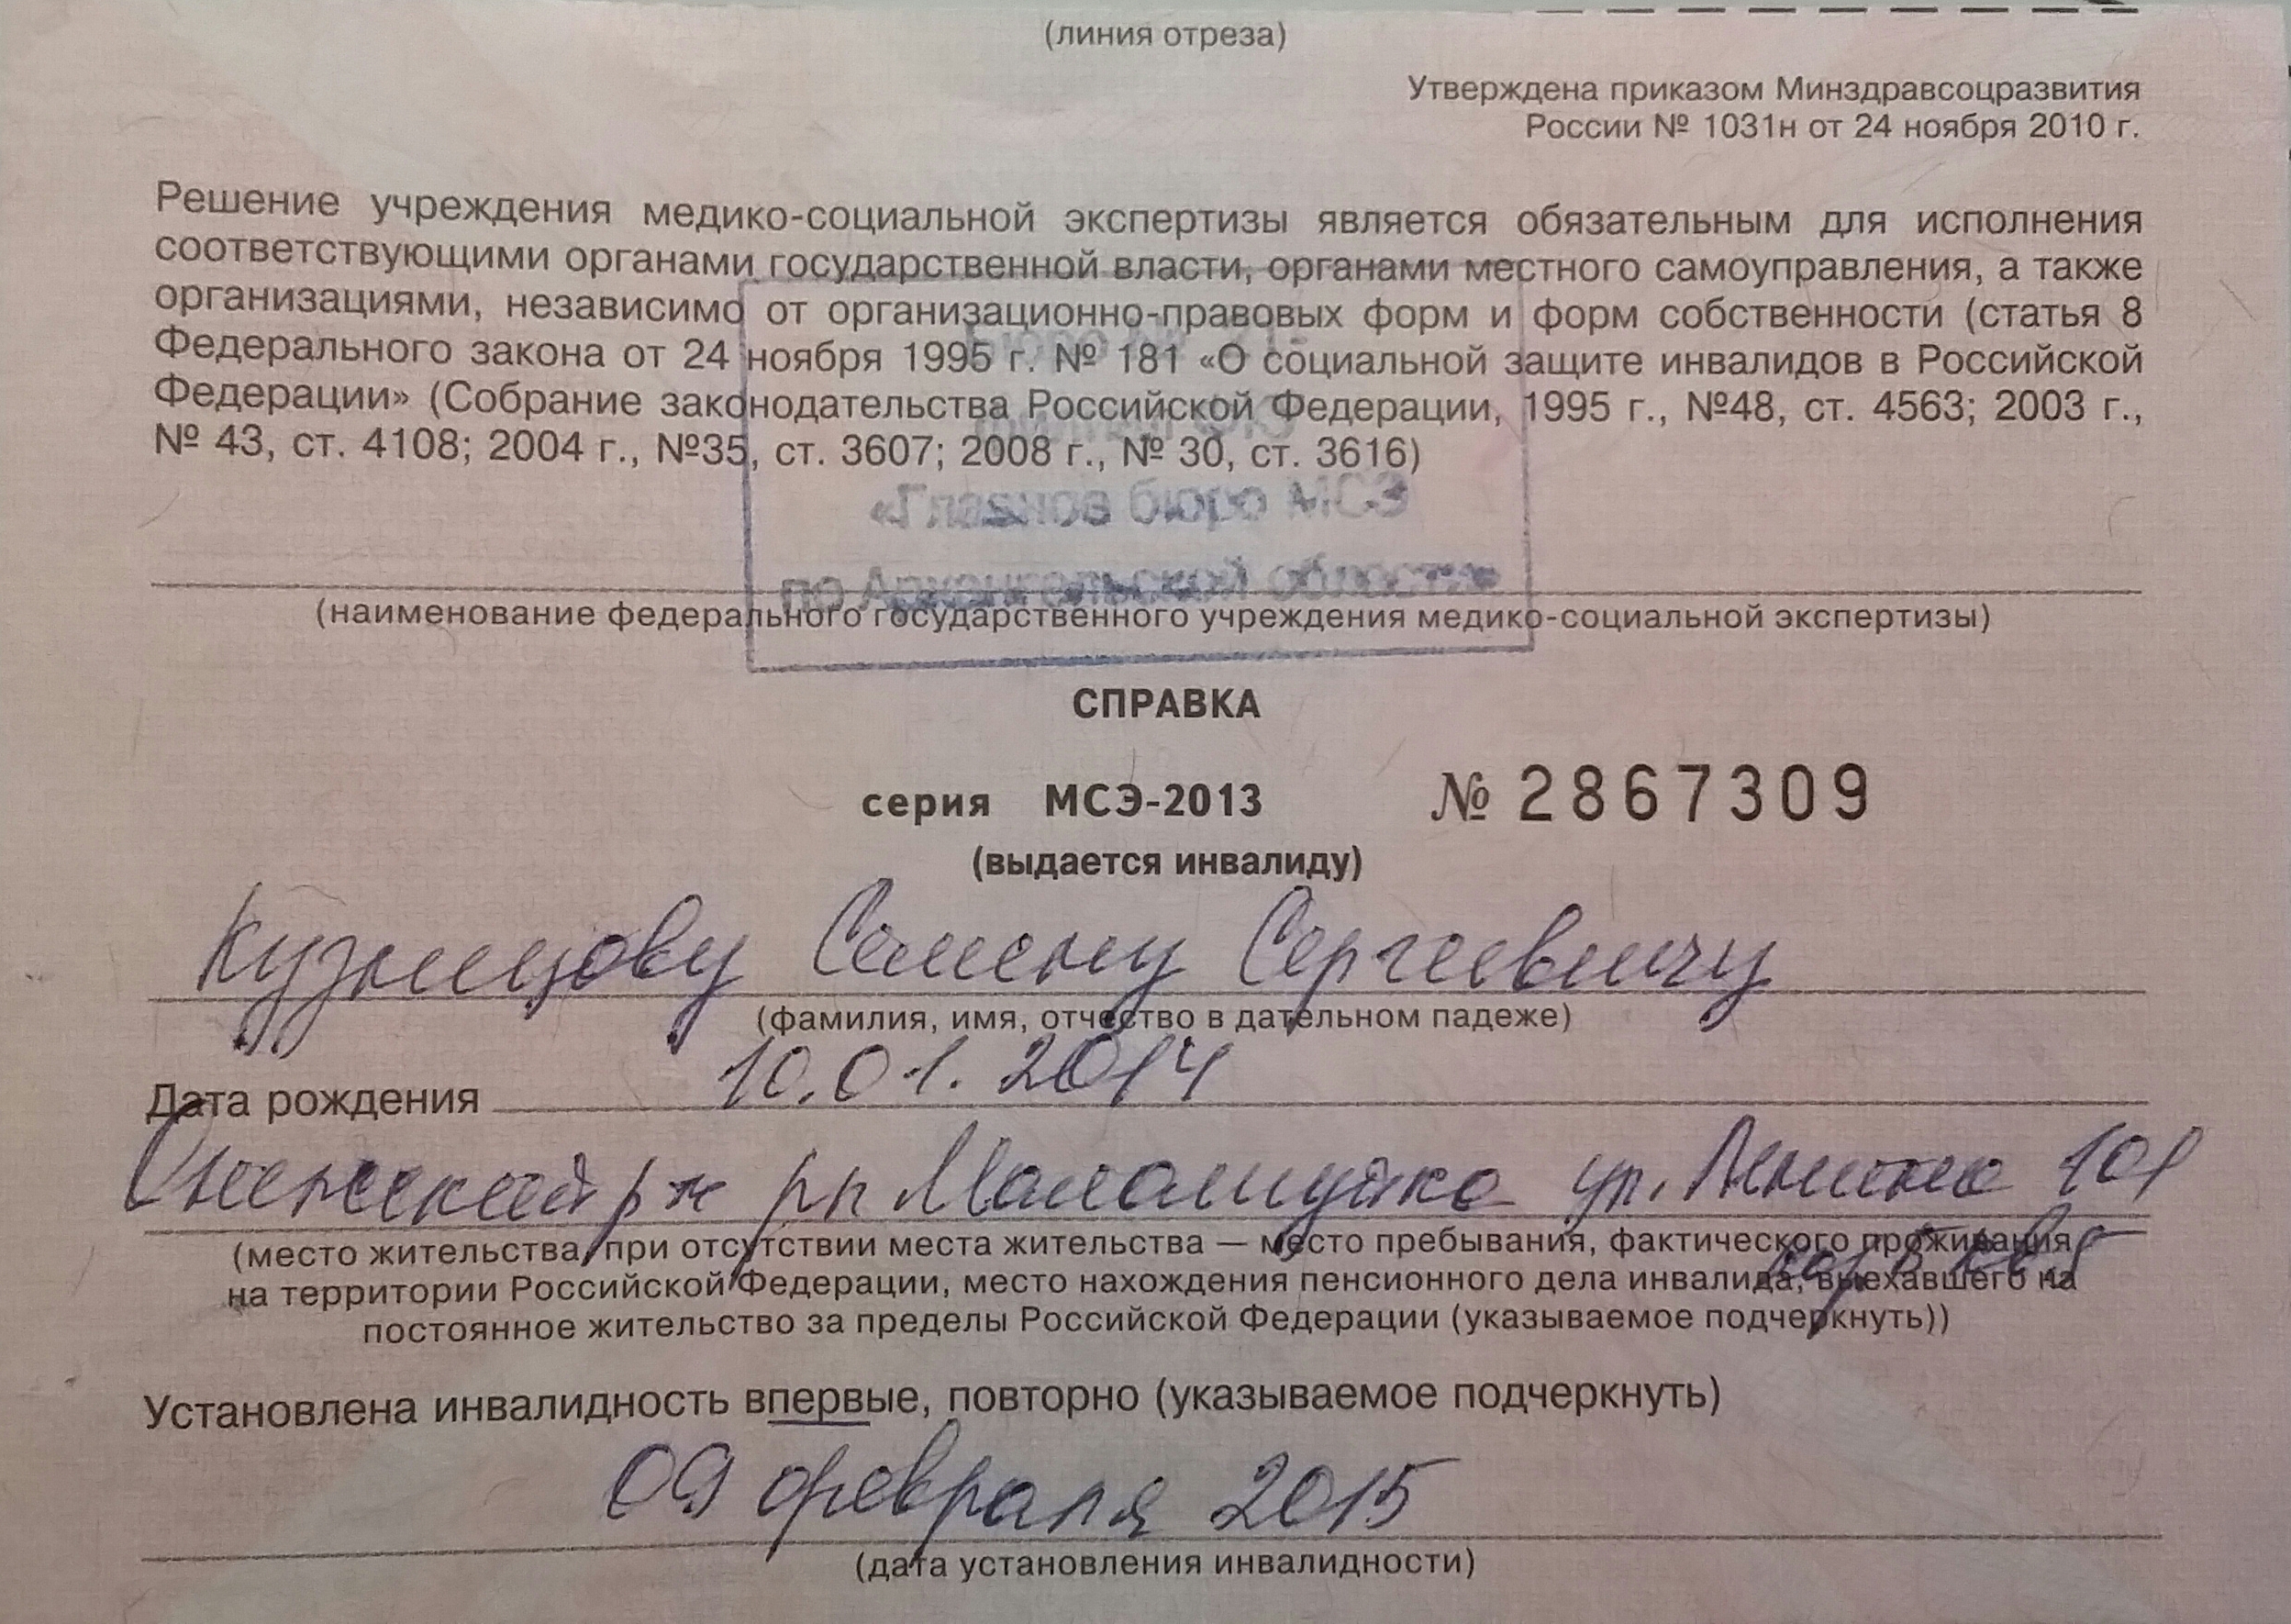 (линия отреза)
Утверждена приказом Минздравсоцразвития
России № 1031н от 24 ноября 2010 г.
Решение учреждения медико-социальной экспертизы является обязательным для исполнения
соответствующими органами государственной власти, органами местного самоуправления, а также
организациями, независимо от организационно-правовых форм и форм собственности (статья 8
Федерального закона от 24 ноября 1995 г. № 181 «О социальной защите инвалидов в Российской
Федерации» (Собрание законодательства Российской Федерации, 1995 г., №48, ст. 4563; 2003 г.,
№ 43, ст. 4108; 2004 г., №35, ст. 3607; 2008 г., № 30, ст. 3616)
«Главное бюро МСЭ
по Архангельской области»
(наименование федерального государственного учреждения медико-социальной экспертизы)
СПРАВКА
серия МСЭ-2013 № 2867309
(выдается инвалиду)
Кузнецову Семену Сергеевичу
(фамилия, имя, отчество в дательном падеже)
Дата рождения 10.01.2014
Онежский р-н рп Малошуйка ул. Ленина 101
(место жительства, при отсутствии места жительства — место пребывания, фактического проживания
на территории Российской Федерации, место нахождения пенсионного дела инвалида, выехавшего на
постоянное жительство за пределы Российской Федерации (указываемое подчеркнуть))
Установлена инвалидность впервые, повторно (указываемое подчеркнуть)
09 февраля 2015
(дата установления инвалидности)